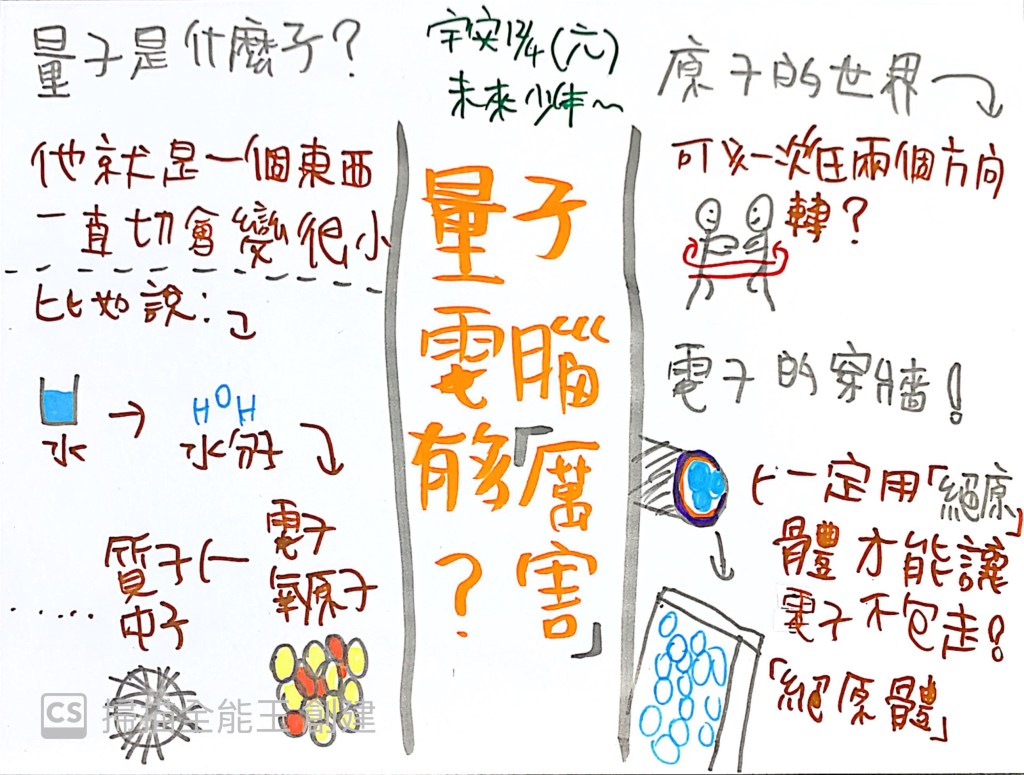 量子是什麼子？
他就是一個東西
一直切會變很小
比如說：
水
H O H
水分子
電子
氧原子
質子
中子
……
宇安 12/4 (六)
未來少年～
量子
電腦
有多「厲
害」
？
原子的世界
可以一次往兩個方向
轉？
電子的穿牆！
一定用「絕原
體」才能讓
電子不包走！
「絕原體」
CS 掃描全能王 創建